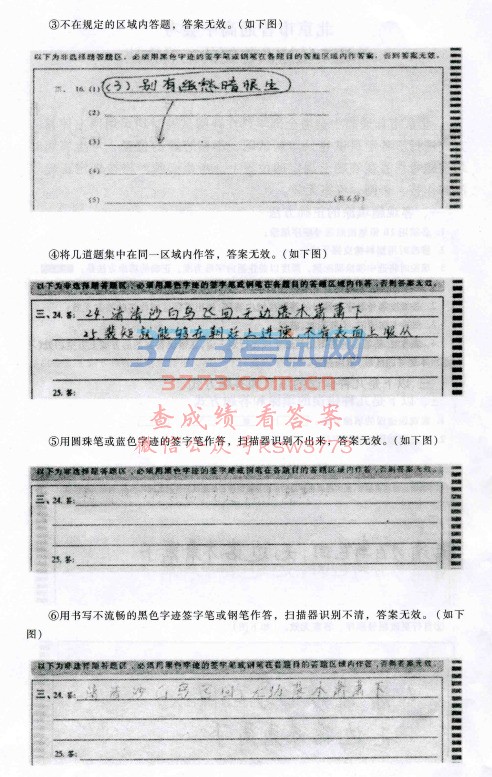 ③不在规定的区域内答题，答案无效。（如下图）
以下为非选择题答题区，必须用黑色字迹的签字笔或钢笔在各题目的答题区域内作答，否则答案无效。
三、16. (1) (3) 别有幽愁暗恨生
(2)
(3)
(4)
(5) (共6分)
④将几道题集中在同一区域内作答，答案无效。（如下图）
以下为非选择题答题区，必须用黑色字迹的签字笔或钢笔在各题目的答题区域内作答，否则答案无效。
三、24. 答： 24. 渚清沙白鸟飞回，无边落木萧萧下
25. 就能够在制度上进谏，不在表面上服从。
25. 答：
3773考试网
3773.com.cn
查成绩 看答案
微信公众号KSW3773
⑤用圆珠笔或蓝色字迹的签字笔作答，扫描器识别不出来，答案无效。（如下图）
以下为非选择题答题区，必须用黑色字迹的签字笔或钢笔在各题目的答题区域内作答，否则答案无效。
三、24. 答：
25. 答：
⑥用书写不流畅的黑色字迹签字笔或钢笔作答，扫描器识别不清，答案无效。（如下
图）
以下为非选择题答题区，必须用黑色字迹的签字笔或钢笔在各题目的答题区域内作答，否则答案无效。
三、24. 答： 渚清沙白鸟飞回，无边落木萧萧下
25. 答：